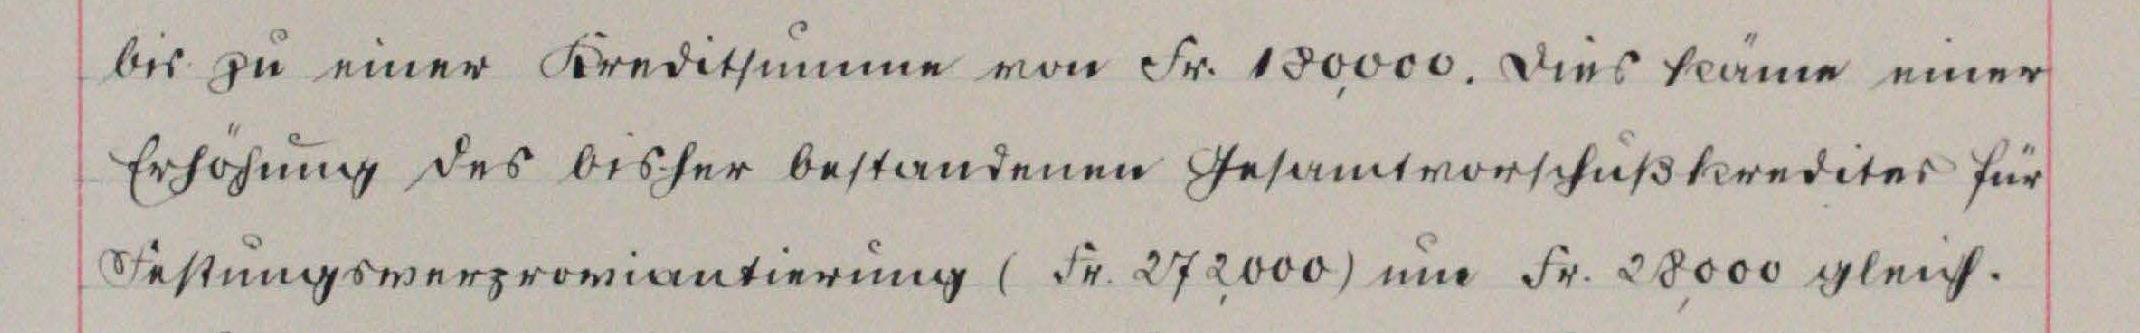 bis zu einer Kreditsumme von Fr. 130,000. Dies käme einer
Erhöhung des bisher bestandenen Gesamtvorschußkredites für
Festungsverproviantierung (Fr. 272,000) um Fr. 28,000 gleich.